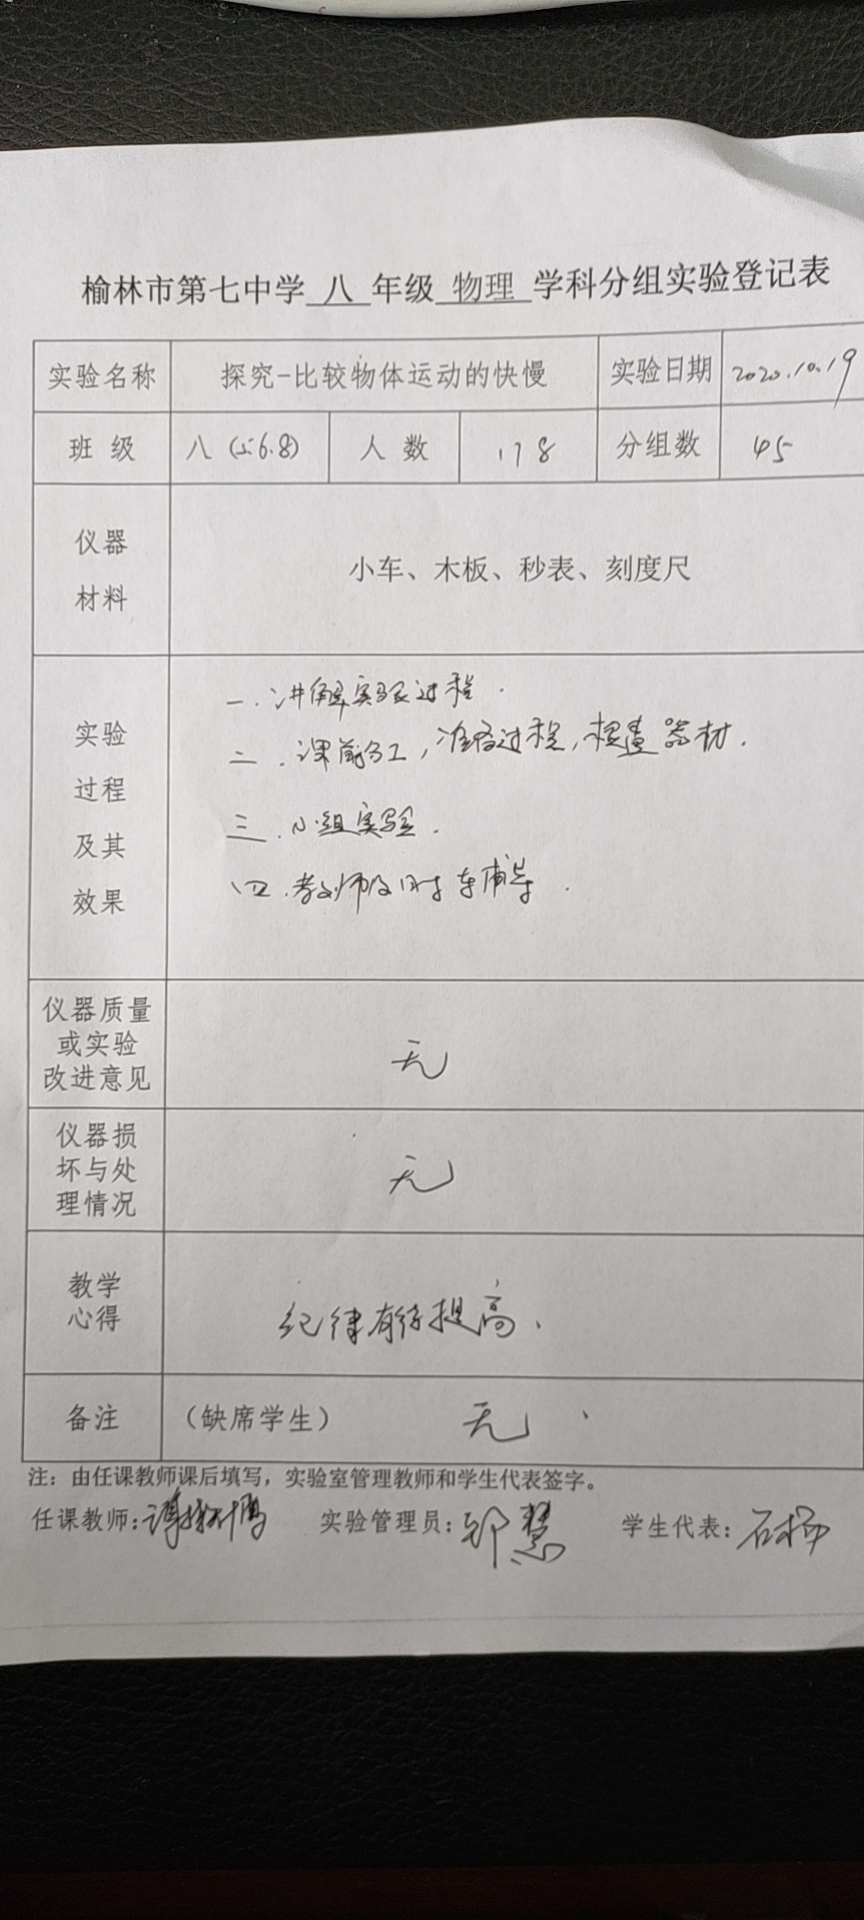 榆林市第七中学 八 年级 物理 学科分组实验登记表
实验名称 探究-比较物体运动的快慢 实验日期 2020.10.19
班 级 八（5.6.8） 人 数 178 分组数 45
仪器
材料
小车、木板、秒表、刻度尺
实验
过程
及其
效果
一.讲解实验过程.
二.课前分工，准备过程，检查器材.
三.小组实验.
四.教师及时辅导.
仪器质量
或实验
改进意见
无
仪器损
坏与处
理情况
无
教学
心得
纪律有待提高.
备注 （缺席学生） 无
注：由任课教师课后填写，实验室管理教师和学生代表签字。
任课教师： 实验管理员：邹慧 学生代表：